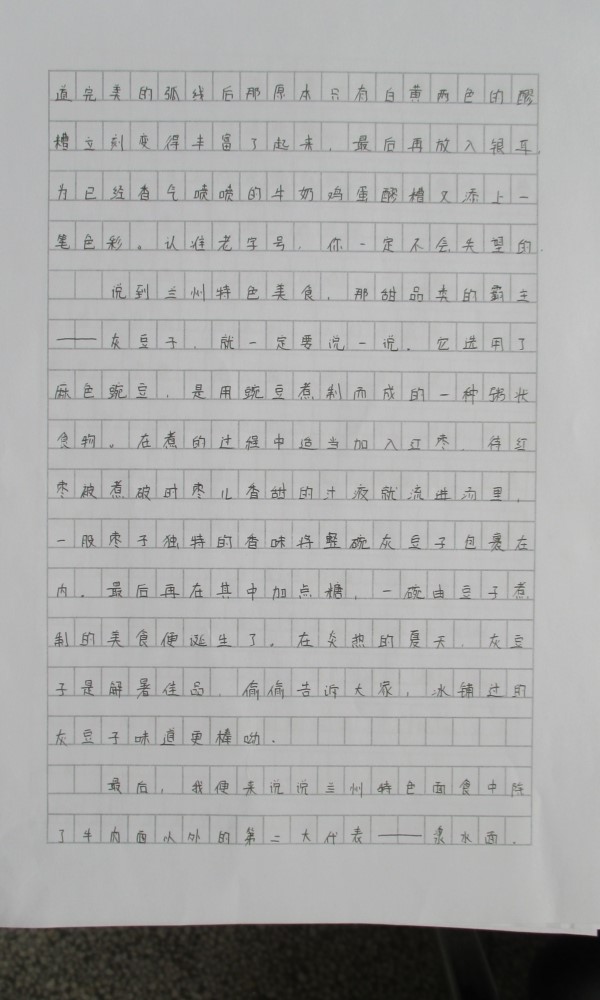 道完美的弧线后那原本只有白黄两色的醪
糟立刻变得丰富了起来，最后再放入银耳，
为已经香气喷喷的牛奶鸡蛋醪糟又添上一
笔色彩。认准老字号，你一定不会失望的。
说到兰州特色美食，那甜品类的霸主
——灰豆子，就一定要说一说。它选用了
麻色豌豆，是用豌豆煮制而成的一种粥状
食物。在煮的过程中适当加入红枣，待红
枣被煮破时枣儿香甜的汁液就流进汤里，
一股枣子独特的香味将整碗灰豆子包裹在
内。最后再在其中加点糖，一碗由豆子煮
制的美食便诞生了。在炎热的夏天，灰豆
子是解暑佳品，偷偷告诉大家，冰镇过的
灰豆子味道更棒呦。
最后，我便来说说兰州特色面食中除
了牛肉面以外的第二大代表——浆水面。